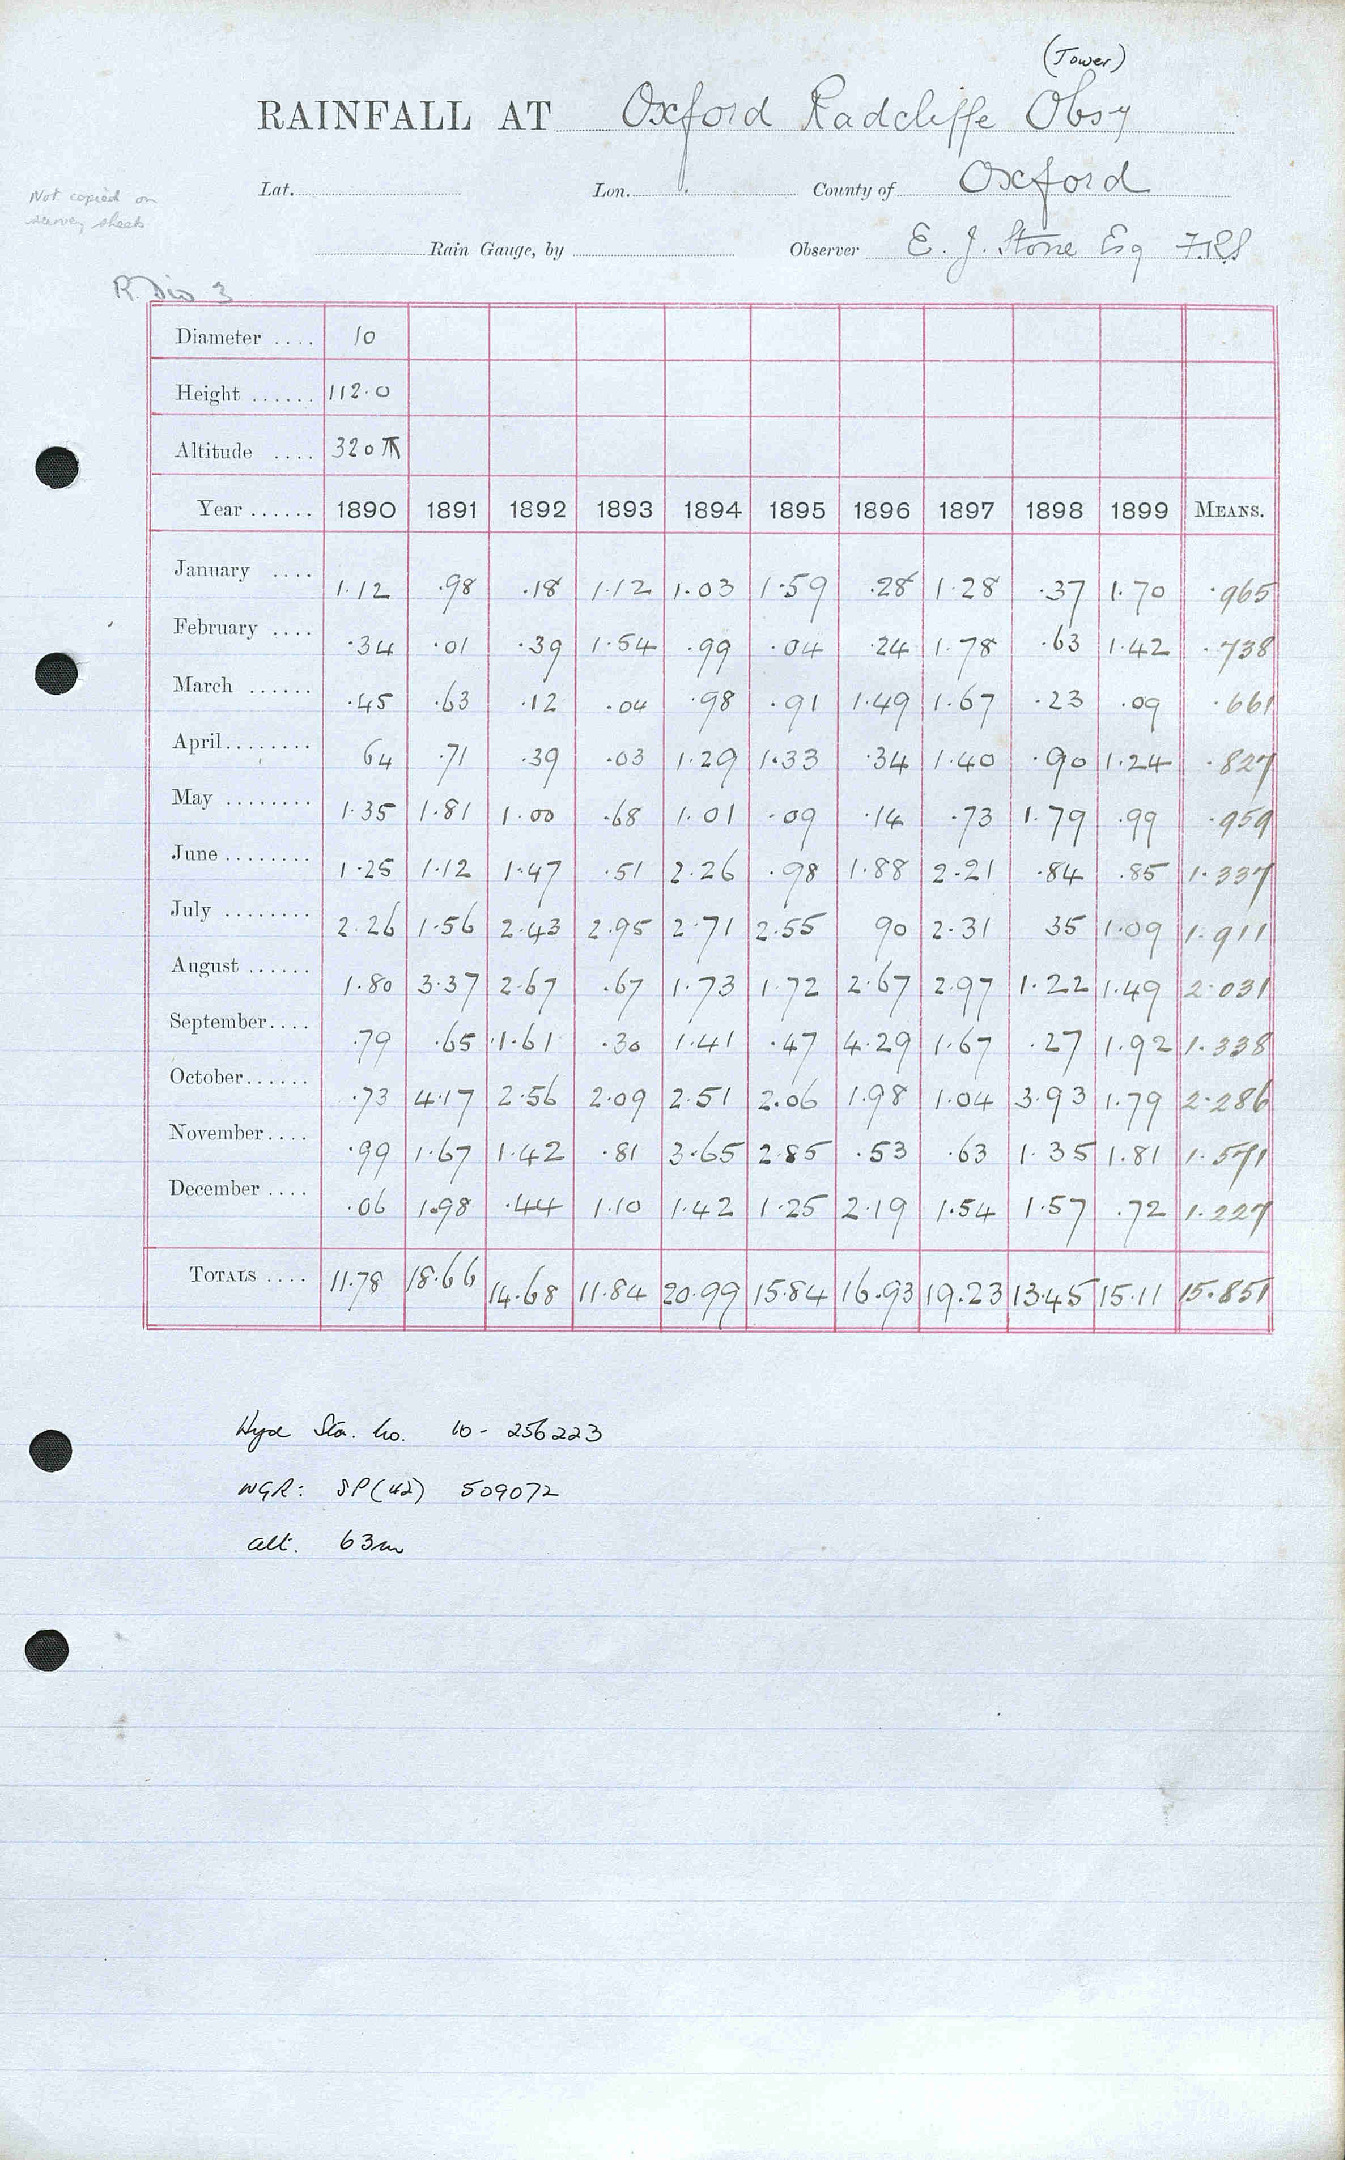 (Tower)
RAINFALL AT Oxford Radcliffe Obsy
Not copied on
survey sheets
Lat. Lon. County of Oxford
Rain Gauge, by Observer E. J. Stone Esq FRS
R. Div 3
Diameter .... 10
Height ...... 112.0
Altitude .... 320
Year ...... 1890 1891 1892 1893 1894 1895 1896 1897 1898 1899 MEANS.
January .... 1.12 .98 .18 1.12 1.03 1.59 .28 1.28 .37 1.70 .965
February .... .34 .01 .39 1.54 .99 .04 .24 1.78 .63 1.42 .738
March ...... .45 .63 .12 .04 .98 .91 1.49 1.67 .23 .09 .661
April........ 64 .71 .39 .03 1.29 1.33 .34 1.40 .90 1.24 .827
May ........ 1.35 1.81 1.00 .68 1.01 .09 .14 .73 1.79 .99 .959
June ........ 1.25 1.12 1.47 .51 2.26 .98 1.88 2.21 .84 .85 1.337
July ........ 2.26 1.56 2.43 2.95 2.71 2.55 90 2.31 35 1.09 1.911
August ...... 1.80 3.37 2.67 .67 1.73 1.72 2.67 2.97 1.22 1.49 2.031
September.... .79 .65 1.61 .30 1.41 .47 4.29 1.67 .27 1.92 1.338
October...... .73 4.17 2.56 2.09 2.51 2.06 1.98 1.04 3.93 1.79 2.286
November.... .99 1.67 1.42 .81 3.65 2.85 .53 .63 1.35 1.81 1.571
December .... .06 1.98 .44 1.10 1.42 1.25 2.19 1.54 1.57 .72 1.227
TOTALS .... 11.78 18.66 14.68 11.84 20.99 15.84 16.93 19.23 13.45 15.11 15.851
Hyd Sta. no. 10 - 256223
NGR: SP(42) 509072
alt. 63m